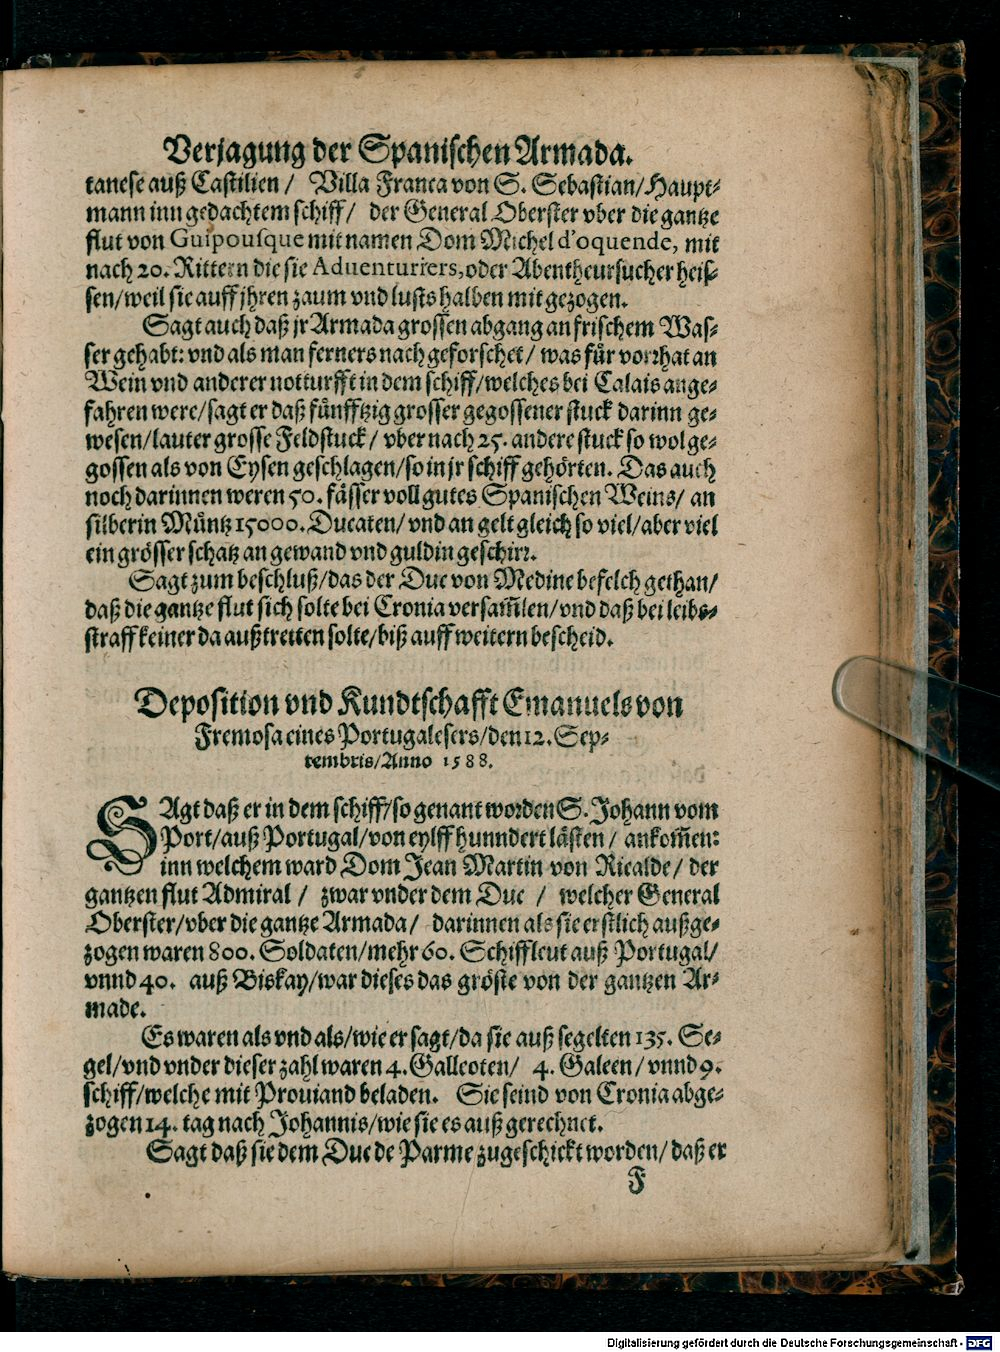 Verjagung der Spanischen Armada.
tanese auß Castilien / Villa Franca von S. Sebastian/Haupt-
mann inn gedachtem schiff/ der General Oberster vber die gantze
flut von Guipousque mit namen Dom Michel d'oquende, mit
nach 20. Rittern die sie Aduenturiers, oder Abentheursucher heis-
sen/weil sie auff jhren zaum vnd lusts halben mit gezogen.
Sagt auch daß jr Armada grossen abgang an frischem Was-
ser gehabt: vnd als man ferners nach geforschet / was für vorrhat an
Wein vnd anderer notturfft in dem schiff/welches bei Calais ange-
fahren were/sagt er daß fünfftzig grosser gegossener stuck darinn ge-
wesen/lauter grosse Feldstuck / vber nach 25. andere stuck so wol ge-
gossen als von Eysen geschlagen/so in jr schiff gehörten. Das auch
noch darinnen weren 50. fässer voll gutes Spanischen Weins/ an
silberin Müntz 15000. Ducaten/ vnd an gelt gleich so viel/aber viel
ein grösser schatz an gewand vnd guldin geschirr.
Sagt zum beschluß/das der Duc von Medine befelch gethan/
daß die gantze flut sich solte bei Cronia versam̃len/vnd daß bei leibs-
straff keiner da außtretten solte/biß auff weitern bescheid.
Deposition vnd Kundtschafft Emanuels von
Fremosa eines Portugalesers/den 12. Sep-
tembris/Anno 1588.
SAgt daß er in dem schiff/so genant worden S. Johann vom
Port/auß Portugal/von eylff hunndert lästen / ankom̃en:
inn welchem ward Dom Jean Martin von Ricalde / der
gantzen flut Admiral / zwar vnder dem Duc / welcher General
Oberster/vber die gantze Armada / darinnen als sie erstlich außge-
zogen waren 800. Soldaten/mehr 60. Schiffleut auß Portugal/
vnnd 40. auß Biskay/war dieses das gröste von der gantzen Ar-
made.
Es waren als vnd als/wie er sagt/da sie auß segelten 135. Se-
gel/vnd vnder dieser zahl waren 4. Galleoten/ 4. Galeen / vnnd 9.
schiff/welche mit Prouiand beladen. Sie seind von Cronia abge-
zogen 14. tag nach Johannis/wie sie es auß gerechnet.
Sagt daß sie dem Duc de Parme zugeschickt worden/ daß er
F
Digitalisierung gefördert durch die Deutsche Forschungsgemeinschaft - DFG